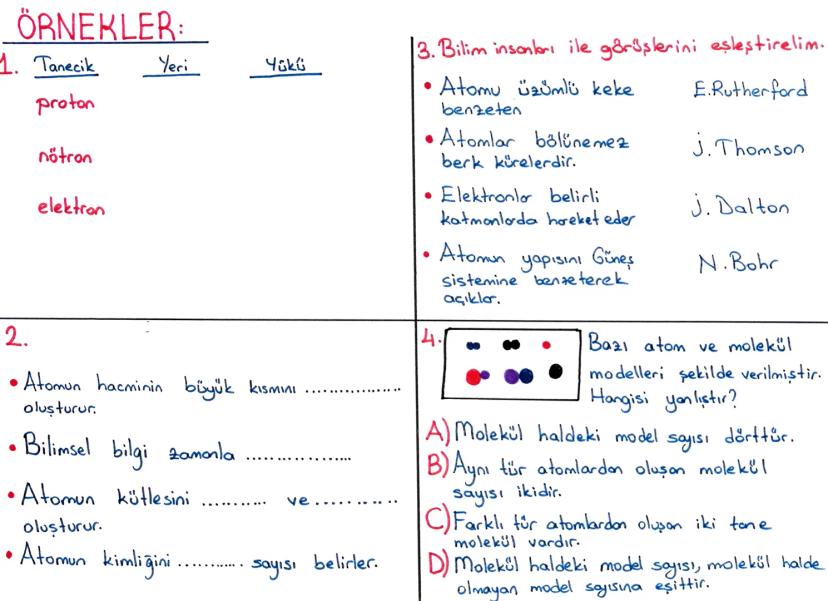 ÖRNEKLER:
1. Tanecik Yeri Yükü
proton
nötron
elektron
2.
• Atomun hacminin büyük kısmını ..................
oluşturur.
• Bilimsel bilgi zamanla ..................
• Atomun kütlesini ........... ve ...........
oluşturur.
• Atomun kimliğini ............ sayısı belirler.
3. Bilim insanları ile görüşlerini eşleştirelim.
• Atomu üzümlü keke E.Rutherford
benzeten
• Atomlar bölünemez J.Thomson
berk kürelerdir.
• Elektronlar belirli J. Dalton
katmanlarda hareket eder
• Atomun yapısını Güneş N.Bohr
sistemine benzeterek
açıklar.
4. Bazı atom ve molekül
modelleri şekilde verilmiştir.
Hangisi yanlıştır?
A) Molekül haldeki model sayısı dörttür.
B) Aynı tür atomlardan oluşan molekül
sayısı ikidir.
C) Farklı tür atomlardan oluşan iki tane
molekül vardır.
D) Molekül haldeki model sayısı, molekül halde
olmayan model sayısına eşittir.